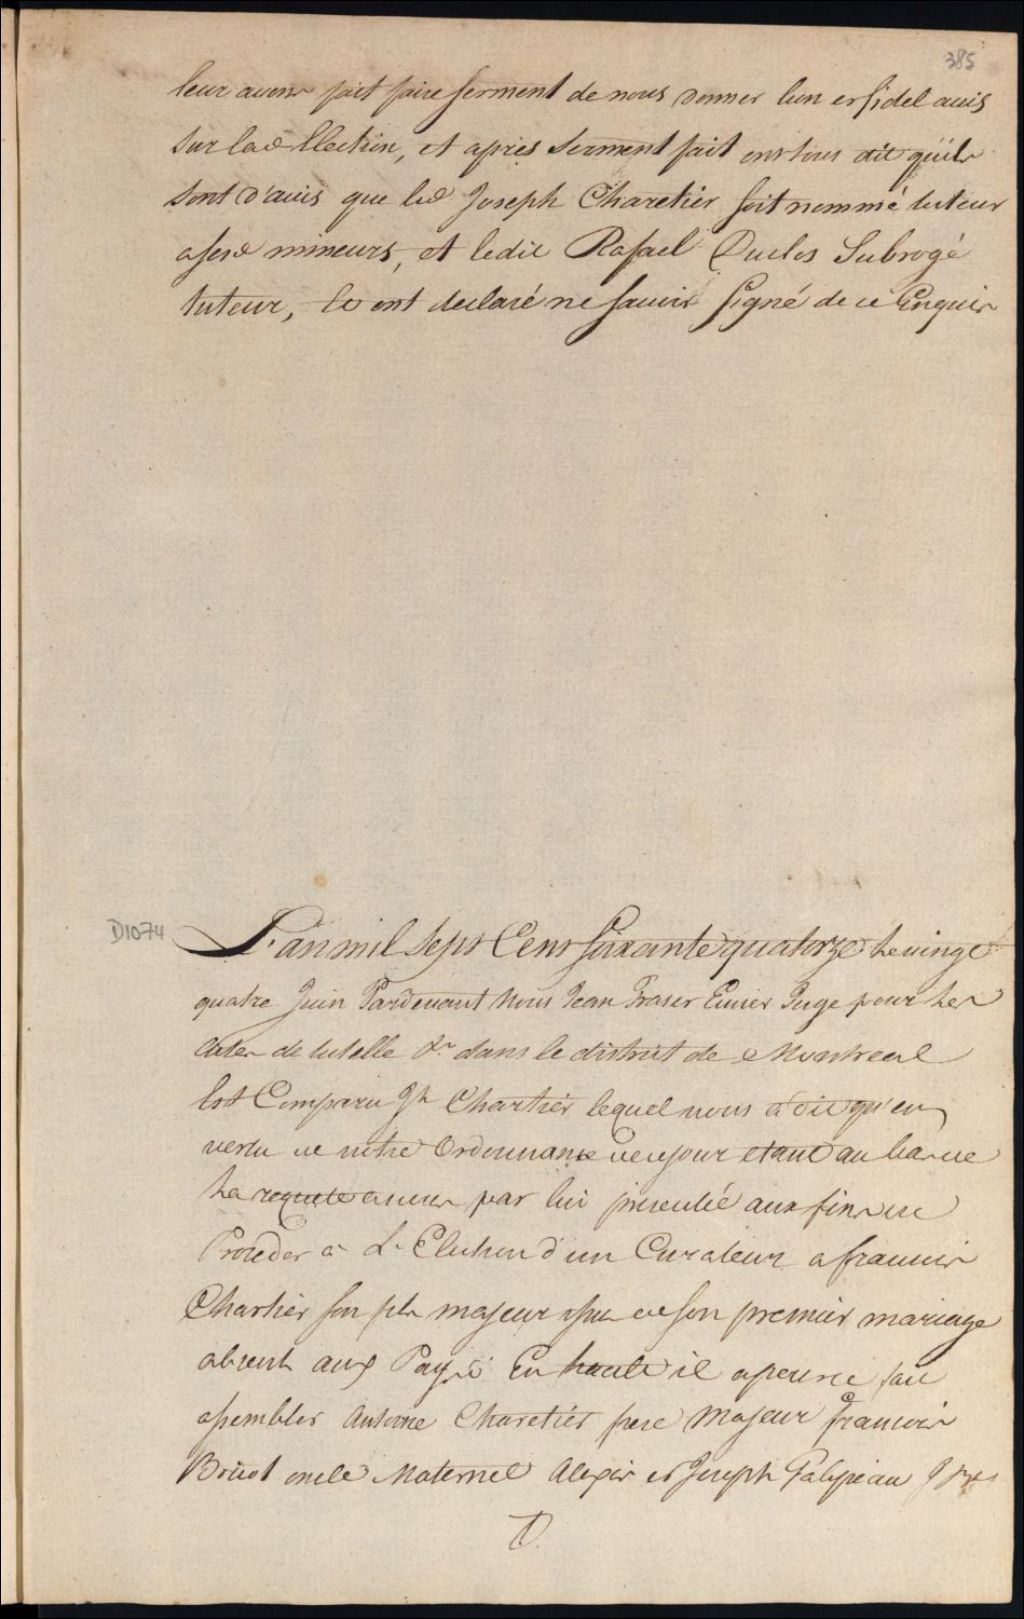 385
leur avons fait faire serment de nous donner bon et fidel avis
sur lad Ellection, et apres serment fait ont tous dit qu'ils
sont d'avis que led Joseph Charetier soit nommé tuteur
a sesd mineurs, et ledit Rafael Duclos Subrogé
tuteur, et ont declaré ne savoir signé de ce Enquis
D1074
L'an mil Sept Cent soixante quatorze Le vingt
quatre Juin Pardevant Nous Jean Fraser Ecuier Juge pour les
Actes de tutelle &c dans le district de Montreal
Est Comparu Jh Chartier lequel nous a dit qu'en
vertu de nôtre Ordonnance de ce jour etant au bas de
La requete a nous par lui presentée aux fins de
Proceder a L'Election d'un Curateur a francois
Chartier son fils majeur issu de son premier mariage
absent aux Pays d'En haut il a permis fait
assembler Antoine Charetier frere Majeur francois
Briiot oncle Maternel Alexis et Joseph Galipeau
D.